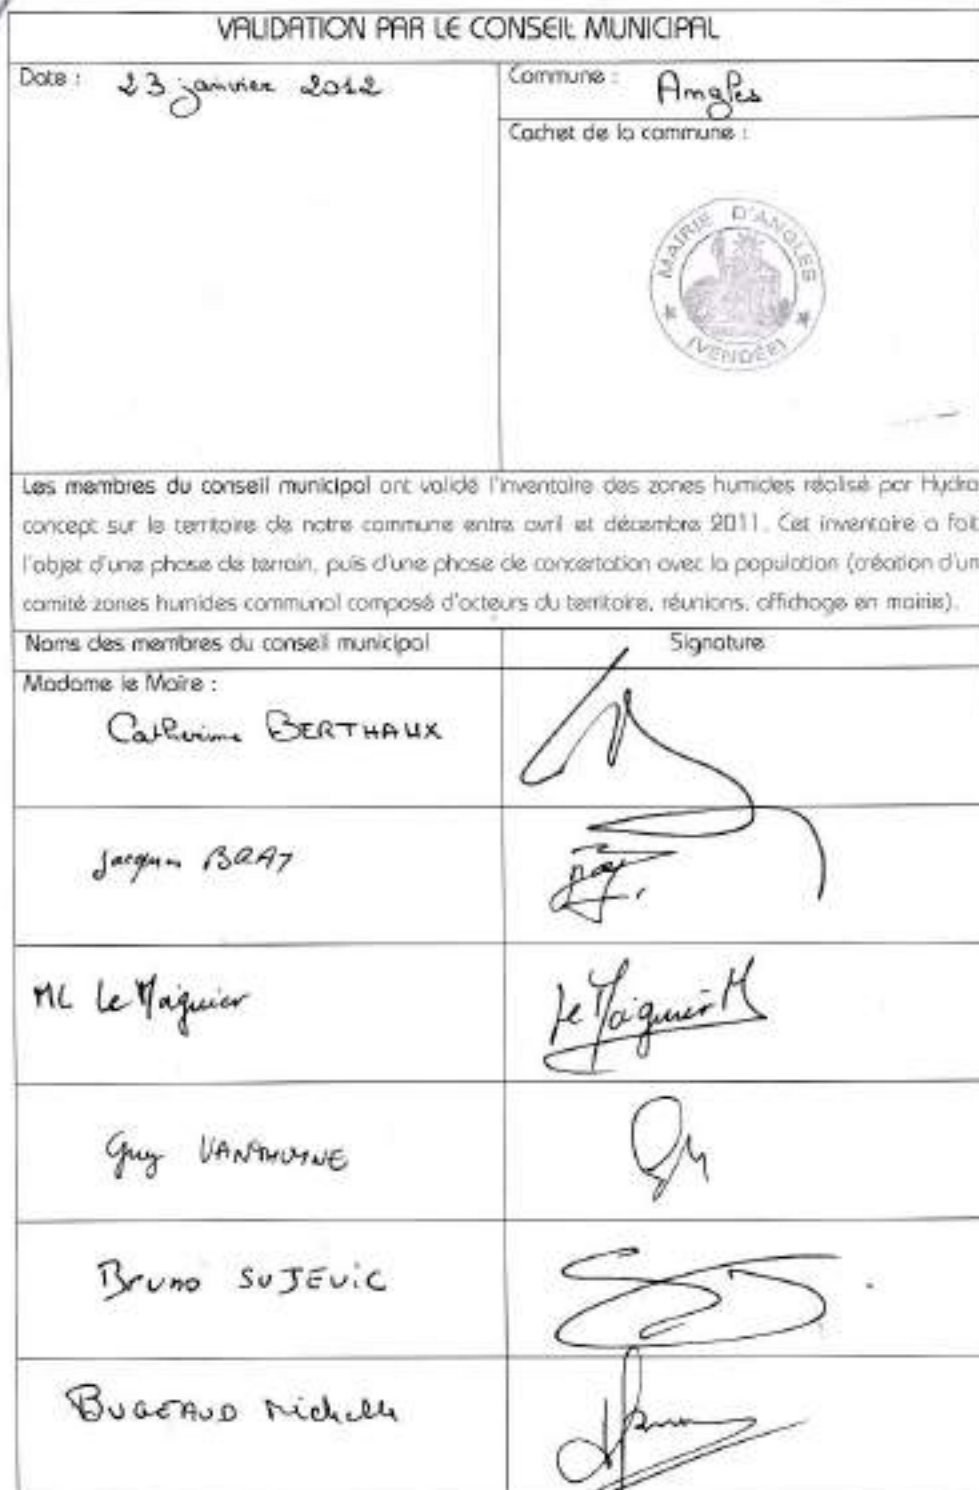 VALIDATION PAR LE CONSEIL MUNICIPAL
Date : 23 janvier 2012
Commune : Angles
Cachet de la commune :
MAIRIE D'ANGLES
(VENDÉE)
Les membres du conseil municipal ont validé l'inventaire des zones humides réalisé par Hydro
concept sur le territoire de notre commune entre avril et décembre 2011. Cet inventaire a fait
l'objet d'une phase de terrain, puis d'une phase de concertation avec la population (création d'un
comité zones humides communal composé d'acteurs du territoire, réunions, affichage en mairie).
Noms des membres du conseil municipal
Signature
Madame le Maire :
Catherine BERTHAUX
Jacques
ML Le Maguier
Le Maguier M
Guy
Bruno SUJEVIC
BUGEAUD Michelle